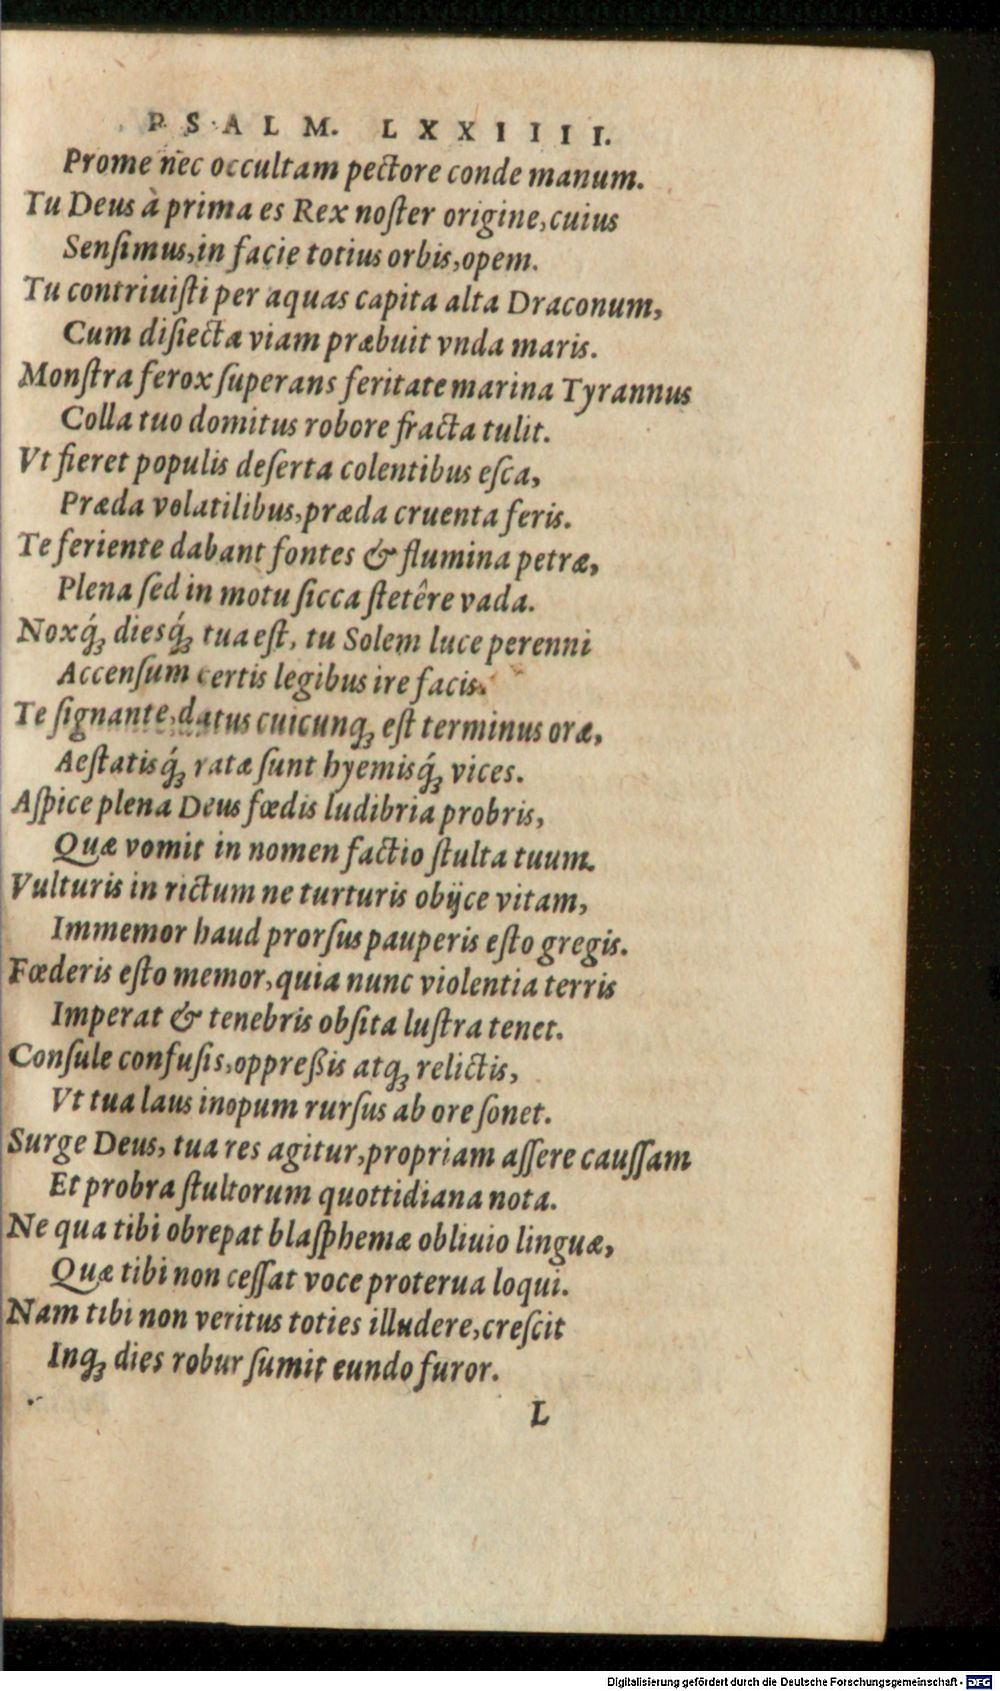 PSALM. LXXIIII.
Prome nec occultam pectore conde manum.
Tu Deus à prima es Rex noſter origine, cuius
Senſimus, in facie totius orbis, opem.
Tu contriuiſti per aquas capita alta Draconum,
Cum diſiecta viam præbuit vnda maris.
Monſtra ferox ſuperans feritate marina Tyrannus
Colla tuo domitus robore fracta tulit.
Vt fieret populis deſerta colentibus eſca,
Præda volatilibus, præda cruenta feris.
Te feriente dabant fontes & flumina petræ,
Plena ſed in motu ſicca ſtetêre vada.
Noxq́ꝫ diesq́ꝫ tua eſt, tu Solem luce perenni
Accenſum certis legibus ire facis.
Te ſignante, datus cuicunqꝫ eſt terminus oræ,
Aeſtatisq́ꝫ ratæ ſunt hyemisq́ꝫ vices.
Aſpice plena Deus fœdis ludibria probris,
Quæ vomit in nomen factio ſtulta tuum.
Vulturis in rictum ne turturis obijce vitam,
Immemor haud prorſus pauperis eſto gregis.
Fœderis eſto memor, quia nunc violentia terris
Imperat & tenebris obſita luſtra tenet.
Conſule confuſis, oppreßis atqꝫ relictis,
Vt tua laus inopum rurſus ab ore ſonet.
Surge Deus, tua res agitur, propriam aſſere cauſſam
Et probra ſtultorum quottidiana nota.
Ne qua tibi obrepat blaſphemæ obliuio linguæ,
Quæ tibi non ceſſat voce proterua loqui.
Nam tibi non veritus toties illudere, creſcit
Inqꝫ dies robur ſumit eundo furor.
L
Digitalisierung gefördert durch die Deutsche Forschungsgemeinschaft - DFG